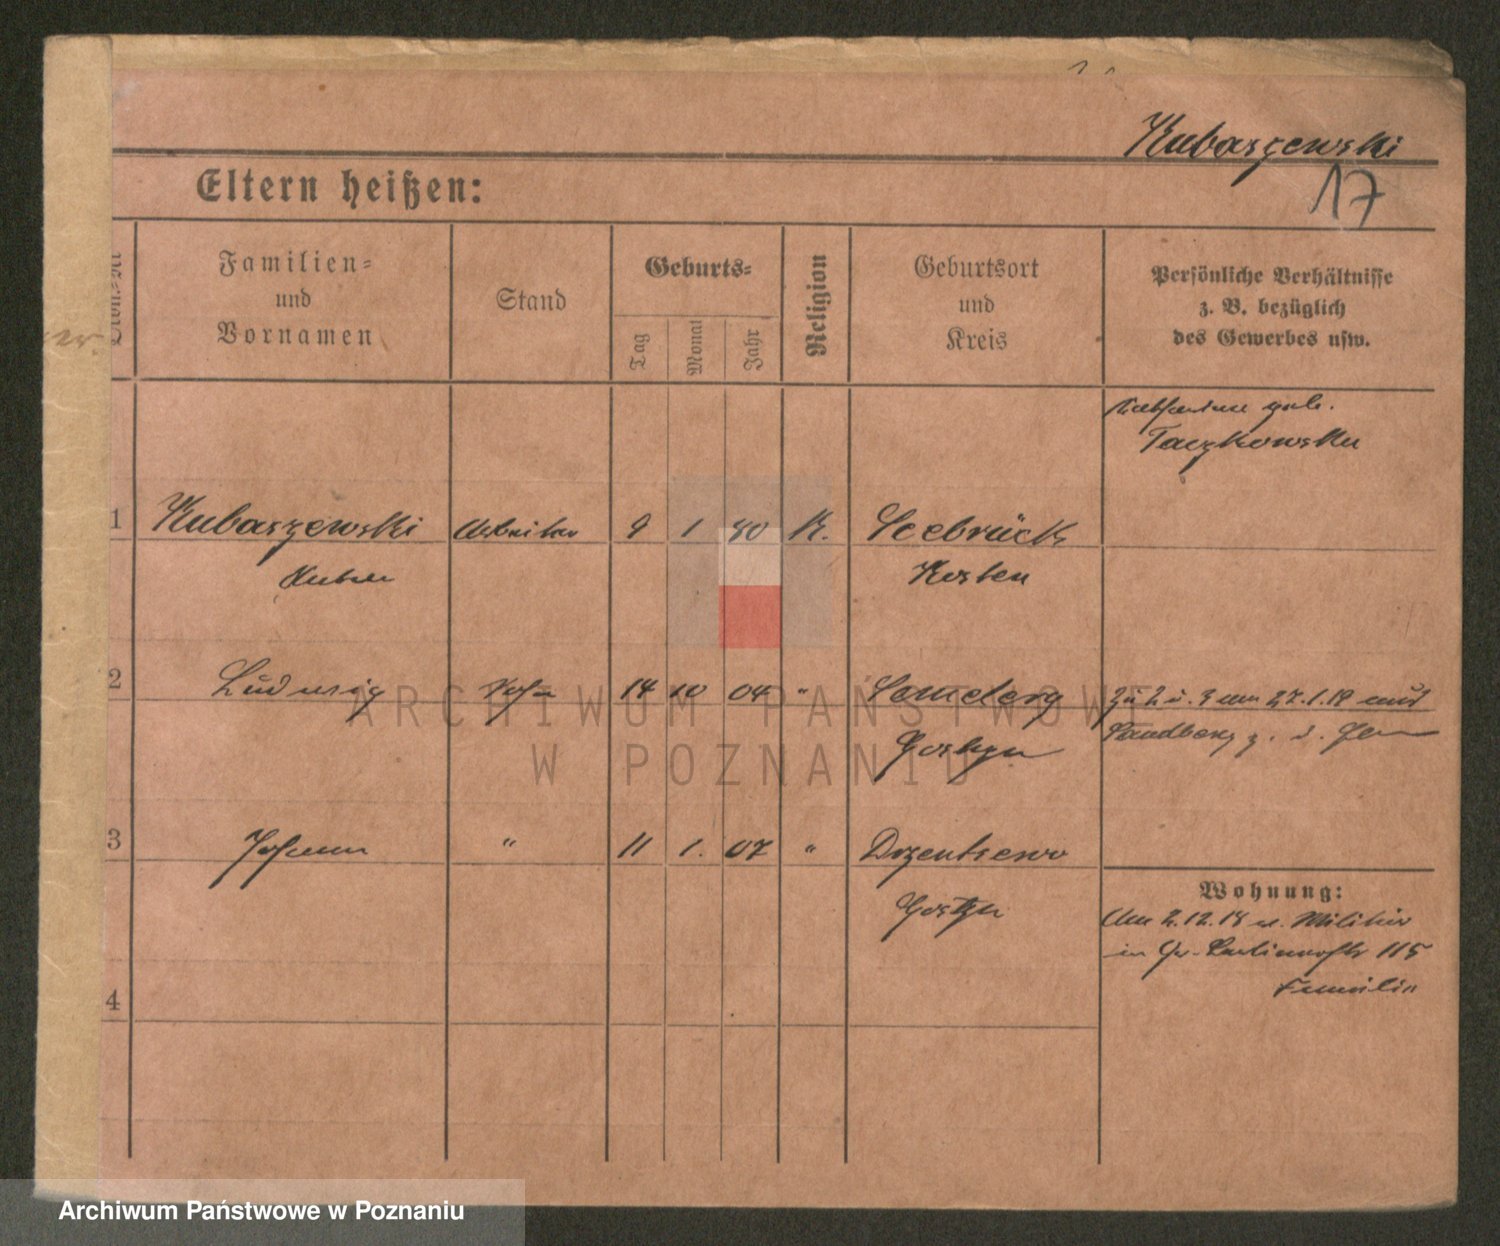 Kubaszewski
17
Eltern heißen:
Familien-
und
Vornamen
Stand
Geburts-
Tag
Monat
Jahr
Religion
Geburtsort
und
Kreis
Persönliche Verhältnisse
z. B. bezüglich
des Gewerbes usw.
geb.
Taczkowska
1 Kubaszewski Arbeiter 9 1 80 K. Seebrück
Kosten
2 Ludwig Sohn 14 10 04 "
27.1.19
Sandberg
Gostyn
3 Johann " 11 1. 07 " Dzentschewo
Gostyn
Wohnung:
Am 2.12.18 v. Militär
in 115
Familie
4
ARCHIWUM PAŃSTWOWE
W POZNANIU
Archiwum Państwowe w Poznaniu